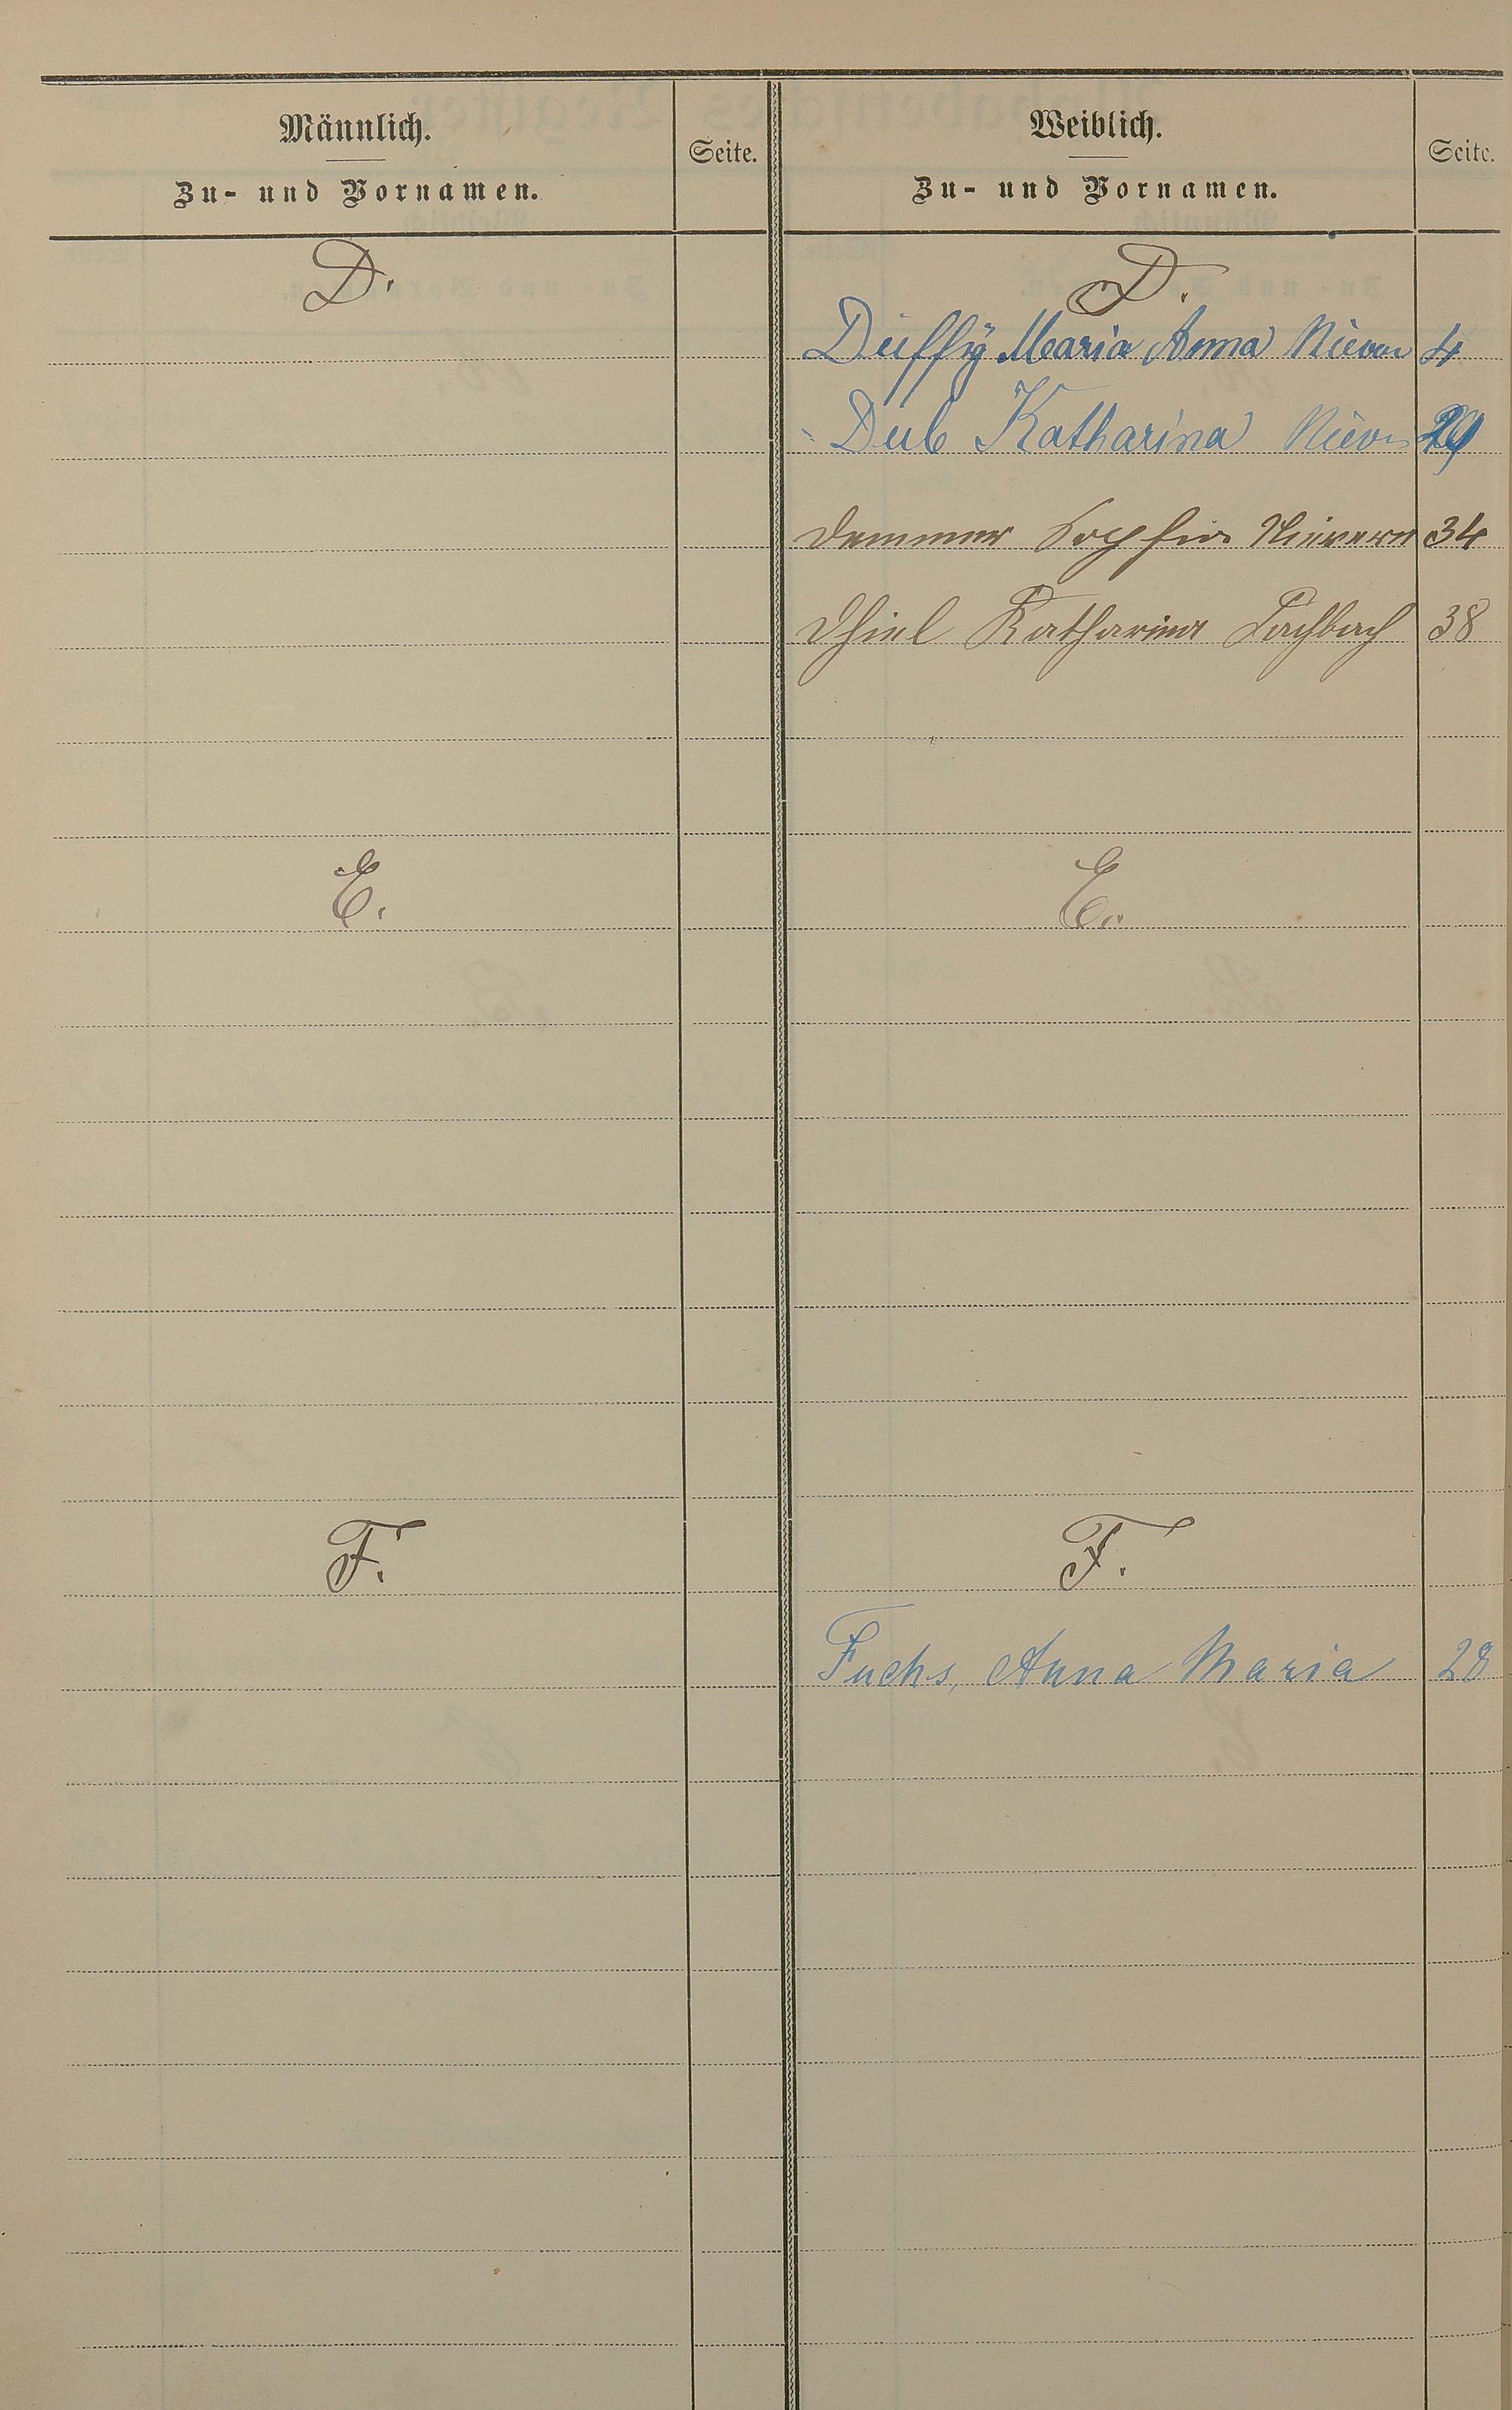 Männlich.
Zu- und Vornamen.
Seite.
Weiblich.
Zu- und Vornamen.
Seite.
D.
D.
Duffÿ Maria Anna Nievern 4
Dub Katharina Nievern 29
Demmer Sophie Nievern 34
Thiel Katharina Fachbach 38
E.
E.
F.
F.
Fuchs, Anna Maria 28